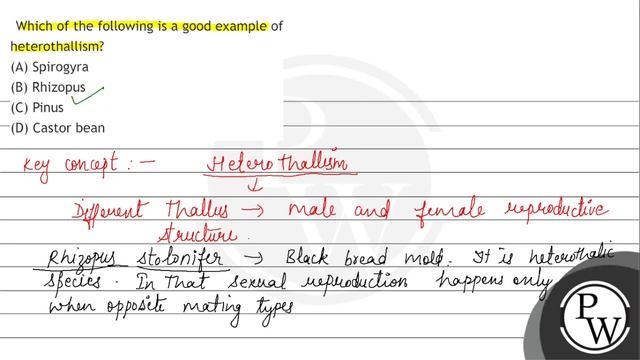 Which of the following is a good example of
heterothallism?
(A) Spirogyra
(B) Rhizopus
(C) Pinus
(D) Castor bean
Key concept :- Heterothallism
Different Thallus → male and female reproductive
structure.
Rhizopus stolonifer → Black bread mold. It is heterothalic
species. In that sexual reproduction happens only
when opposite mating types
P
W